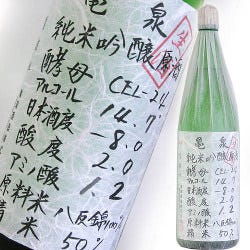 亀泉
純米吟醸原酒
酵母 CEL-24
アルコール 14.7°
日本酒度 -8.0
酸度 2.0
アミノ酸度 1.2
原料米 八反錦
精米 50%
亀泉
純米吟醸原酒
酵母 CEL-24
アルコール 14.7°
日本酒度 -8.0
酸度 2.0
アミノ酸度 1.2
原料米 八反錦
精米 50%